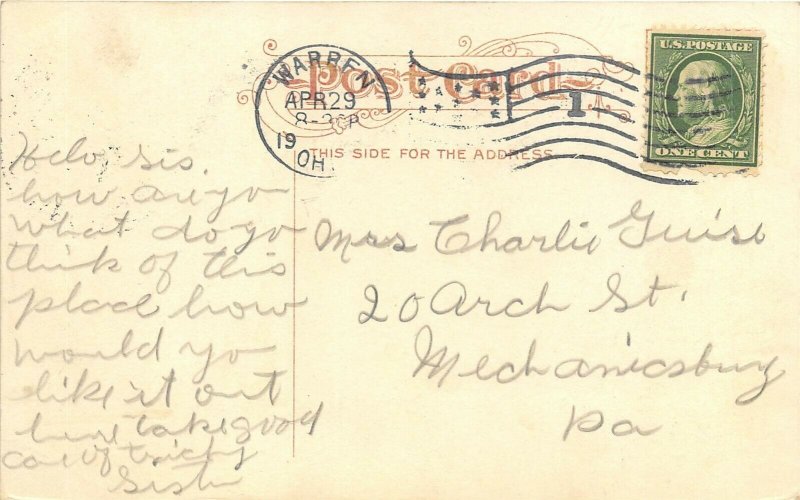 Post Card
U.S. POSTAGE
ONE CENT
WARREN
APR 29
8-30P
19
OH
1
THIS SIDE FOR THE ADDRESS
Helo Sis.
how are yo
what do yo
think of this
place how
would yo
like it out
here take good
care of
Sister
Mrs Charlie Guise
20 Arch St.
Mechanicsburg
Pa